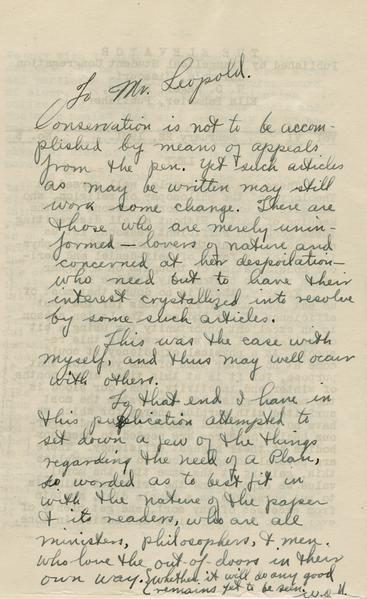 To Mr. Leopold.
Conservation is not to be accom-
plished by means of appeals
from the pen. Yet such articles
as may be written may still
work some change. There are
those who are merely unin-
formed — lovers of nature and
concerned at her despoilation —
who need but to have their
interest crystallized into resolve
by some such articles.
This was the case with
myself, and thus may well occur
with others.
To that end I have in
this publication attempted to
set down a few of the things
regarding the need of a Plan,
so worded as to best fit in
with the nature of the paper
& its readers, who are all
ministers, philosophers, & men
who love the out-of-doors in their
own way. (whether it will do any good
remains yet to be seen.
THE ELEVATOR
Published by
Student Congregation